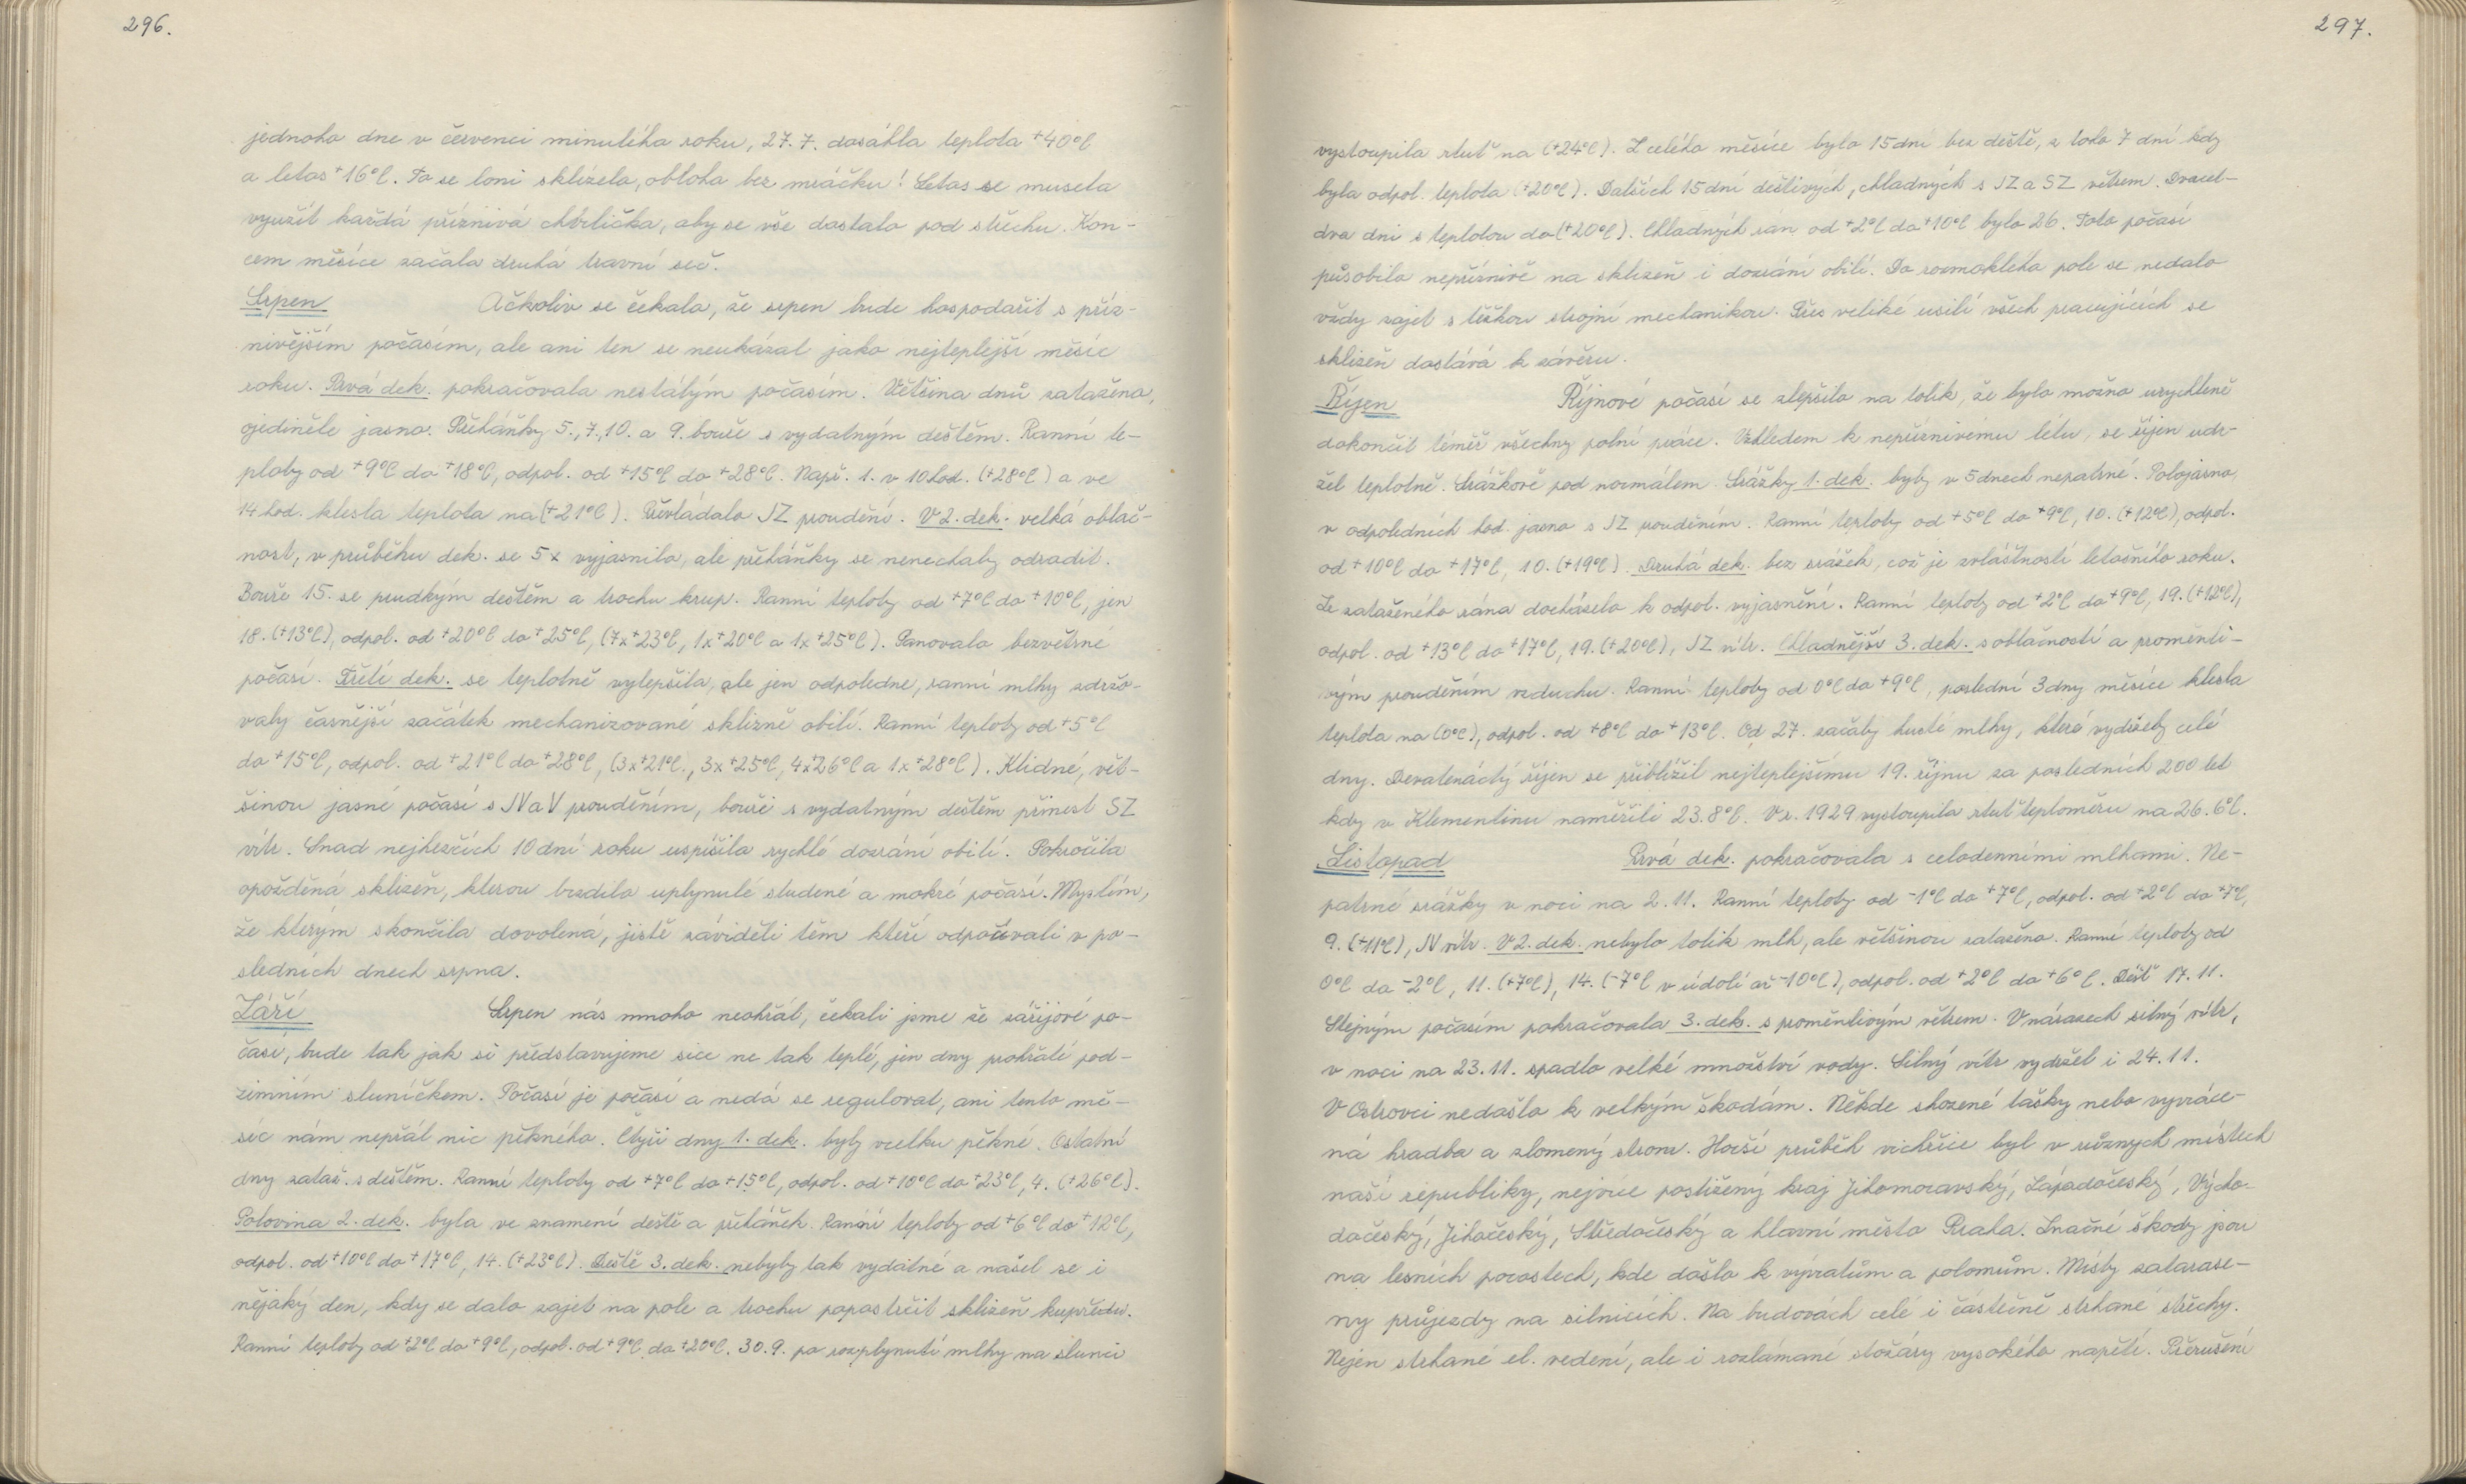 296.
jednoho dne v červenci minulého roku, 27. 7. dosáhla teplota +40°C
a letos +16°C. To se loni sklízela, obloha bez mráčku! Letos se musela
využít každá příznivá chvilička, aby se vše dostalo pod střechu. Kon-
cem měsíce začala druhá travní seč.
Srpen Ačkoliv se čekalo, že srpen bude hospodařit s příz-
nivějším počasím, ale ani ten se neukázal jako nejteplejší měsíc
roku. Prvá dek. pokračovala nestálým počasím. Většina dnů zataženo,
ojediněle jasno. Přeháňky 5., 7., 10. a 9. bouře s vydatným deštěm. Ranní te-
ploty od +9°C do +18°C, odpol. od +15°C do +28°C. Např. 1. v 10 hod. (+28°C) a ve
14 hod. klesla teplota na (+21°C). Převládalo JZ proudění. V 2. dek. velká oblač-
nost, v průběhu dek. se 5x vyjasnilo, ale přeháňky se nenechaly odradit.
Bouře 15. se prudkým deštěm a trochu krup. Ranní teploty od +7°C do +10°C, jen
18. (+13°C), odpol. od +20°C do +25°C, (7x +23°C, 1x +20°C a 1x +25°C). Panovalo bezvětrné
počasí. Třetí dek. se teplotně vylepšila, ale jen odpoledne, ranní mlhy zdržo-
valy časnější začátek mechanizované sklizně obilí. Ranní teploty od +5°C
do +15°C, odpol. od +21°C do +28°C, (3x +21°C., 3x +25°C, 4x +26°C a 1x +28°C). Klidné, vět-
šinou jasné počasí s JV a V prouděním, bouři s vydatným deštěm přinesl SZ
vítr. Snad nejhezčích 10 dní roku uspíšila rychlé dozrání obilí. Pokročila
opožděná sklizeň, kterou brzdilo uplynulé studené a mokré počasí. Myslím,
že kterým skončila dovolená, jistě záviděli těm kteří odpočívali v po-
sledních dnech srpna.
Září Srpen nás mnoho neohřál, čekali jsme že zářijové po-
časí, bude tak jak si představujeme sice ne tak teplé, jen dny prohřáté pod-
zimním sluníčkem. Počasí je počasí a nedá se regulovat, ani tento mě-
síc nám nepřál nic pěkného. Čtyři dny 1. dek. byly vcelku pěkné. Ostatní
dny zataž. s deštěm. Ranní teploty od +7°C do +15°C, odpol. od +10°C do +23°C, 4. (+26°C).
Polovina 2. dek. byla ve znamení deště a přeháněk. Ranní teploty od +6°C do +12°C,
odpol. od +10°C do +17°C, 14. (+23°C). Deště 3. dek. nebyly tak vydatné a našel se i
nějaký den, kdy se dalo zajet na pole a trochu popostrčit sklizeň kupředu.
Ranní teploty od +2°C do +9°C, odpol. od +9°C do +20°C. 30. 9. po rozplynutí mlhy na slunci
297.
vystoupila rtuť na (+24°C). Z celého měsíce bylo 15 dní bez deště, z toho 7 dní kdy
byla odpol. teplota (+20°C). Dalších 15 dní deštivých, chladných s JZ a SZ větrem. Dvacet-
dva dní s teplotou do (+20°C). Chladných rán od +2°C do +10°C bylo 26. Toto počasí
působilo nepříznivě na sklizeň i dozrání obilí. Do rozmoklého pole se nedalo
vždy zajet s těžkou strojní mechanikou. Přes veliké úsilí všech pracujících se
sklizeň dostává k závěru.
Říjen Říjnové počasí se zlepšilo na tolik, že bylo možno urychleně
dokončit téměř všechny polní práce. Vzhledem k nepříznivému létu, se říjen udr-
žel teplotně. Srážkově pod normálem. Srážky 1. dek. byly v 5 dnech nepatrné. Polojasno,
v odpoledních hod. jasno s JZ prouděním. Ranní teploty od +5°C do +9°C, 10. (+12°C), odpol.
od +10°C do +17°C, 10. (+19°C). Druhá dek. bez srážek, což je zvláštností letošního roku.
Ze zataženého rána docházelo k odpol. vyjasnění. Ranní teploty od +2°C do +9°C, 19. (+12°C),
odpol. od +13°C do +17°C, 19. (+20°C), JZ vítr. Chladnější 3. dek. s oblačností a proměnli-
vým prouděním vzduchu. Ranní teploty od 0°C do +9°C, poslední 3 dny měsíce klesla
teplota na (0°C), odpol. od +8°C do +13°C. Od 27. začaly husté mlhy, které vydržely celé
dny. Devatenáctý říjen se přiblížil nejteplejšímu 19. říjnu za posledních 200 let
kdy v Klementinu naměřili 23.8°C. V r. 1929 vystoupila rtuť teploměru na 26.6°C.
Listopad Prvá dek. pokračovala s celodenními mlhami. Ne-
patrné srážky v noci na 2. 11. Ranní teploty od -1°C do +7°C, odpol. od +2°C do +7°C,
9. (+11°C), JV vítr. V 2. dek. nebylo tolik mlh, ale většinou zataženo. Ranní teploty od
0°C do -2°C, 11. (+7°C), 14. (-7°C v údolí až -10°C), odpol. od +2°C do +6°C. Déšť 17. 11.
Stejným počasím pokračovala 3. dek. s proměnlivým větrem. V nárazech silný vítr,
v noci na 23. 11. spadlo velké množství vody. Silný vítr vydržel i 24. 11.
V Ostrovci nedošlo k velkým škodám. Někde shozené tašky nebo vyvráce-
ná hradba a zlomený strom. Horší průběh vichřice byl v různých místech
naší republiky, nejvíce postižený kraj Jihomoravský, Západočeský, Výcho-
dočeský, Jihočeský, Středočeský a hlavní město Praha. Značné škody jsou
na lesních porostech, kde došlo k vývratům a polomům. Místy zatarase-
ny průjezdy na silnicích. Na budovách celé i částečně strhané střechy.
Nejen strhané el. vedení, ale i rozlámané stožáry vysokého napětí. Přerušení